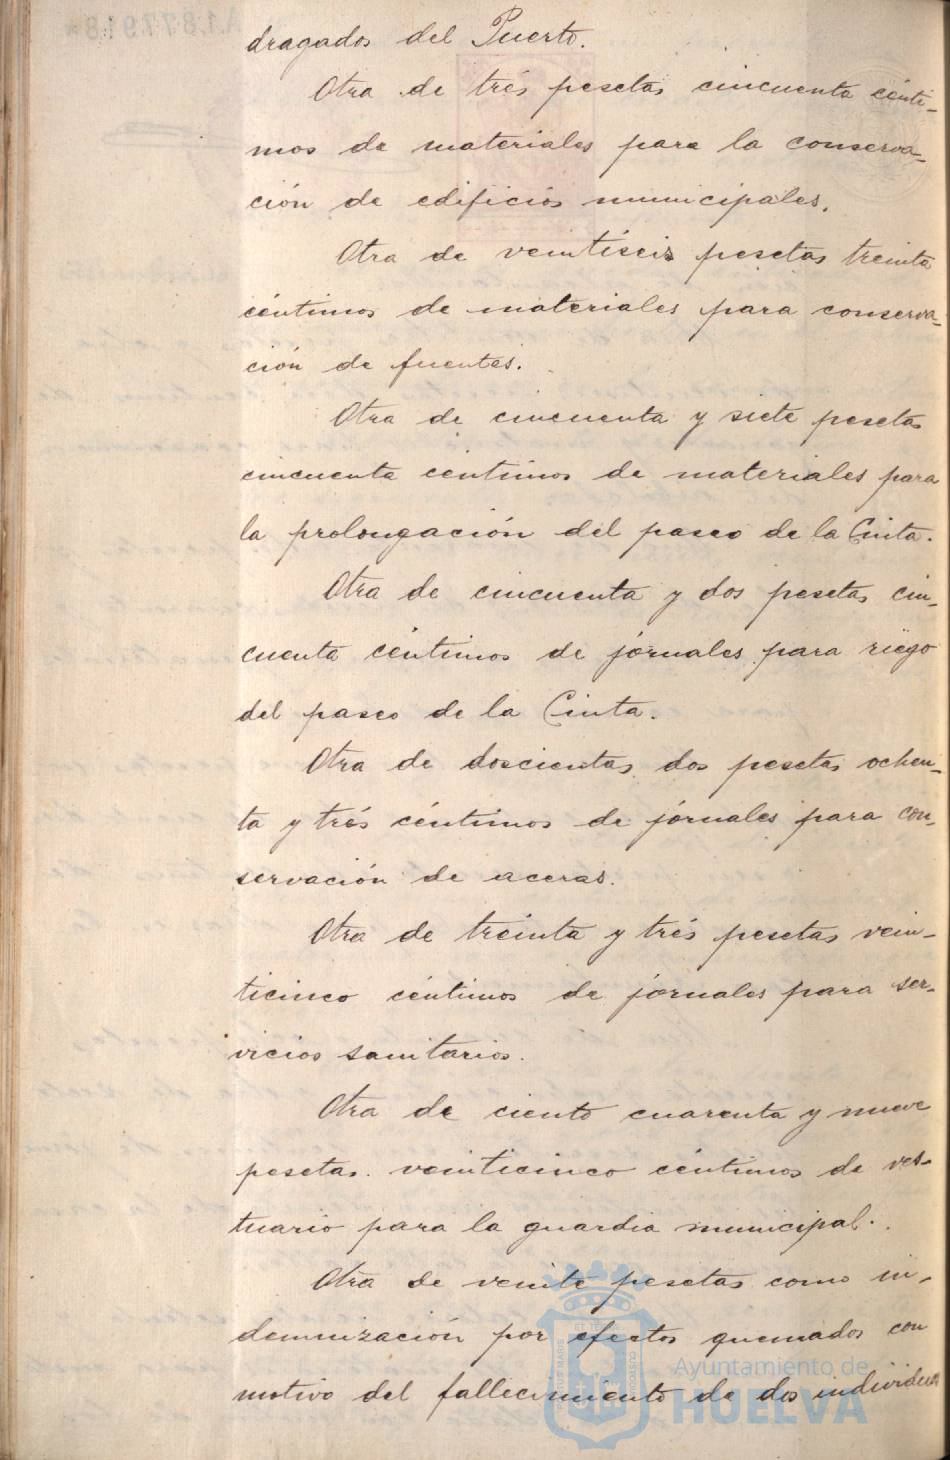 dragados del Puerto.
Otra de trés pesetas cincuenta cénti-
mos de materiales para la conserva-
ción de edificios municipales.
Otra de veintiseis pesetas treinta
céntimos de materiales para conserva-
ción de fuentes.
Otra de cincuenta y siete pesetas
cincuenta céntimos de materiales para
la prolongación del paseo de la Cinta.
Otra de cincuenta y dos pesetas cin-
cuenta céntimos de jornales para riego
del paseo de la Cinta.
Otra de doscientas dos pesetas ochen-
ta y trés céntimos de jornales para con-
servación de aceras.
Otra de treinta y trés pesetas vein-
ticinco céntimos de jornales para ser-
vicios sanitarios.
Otra de ciento cuarenta y nueve
pesetas veinticinco céntimos de ves-
tuario para la guardia municipal.
Otra de veinte pesetas como in-
demnización por efectos quemados con
motivo del fallecimiento de dos individuos
Ayuntamiento de
HUELVA